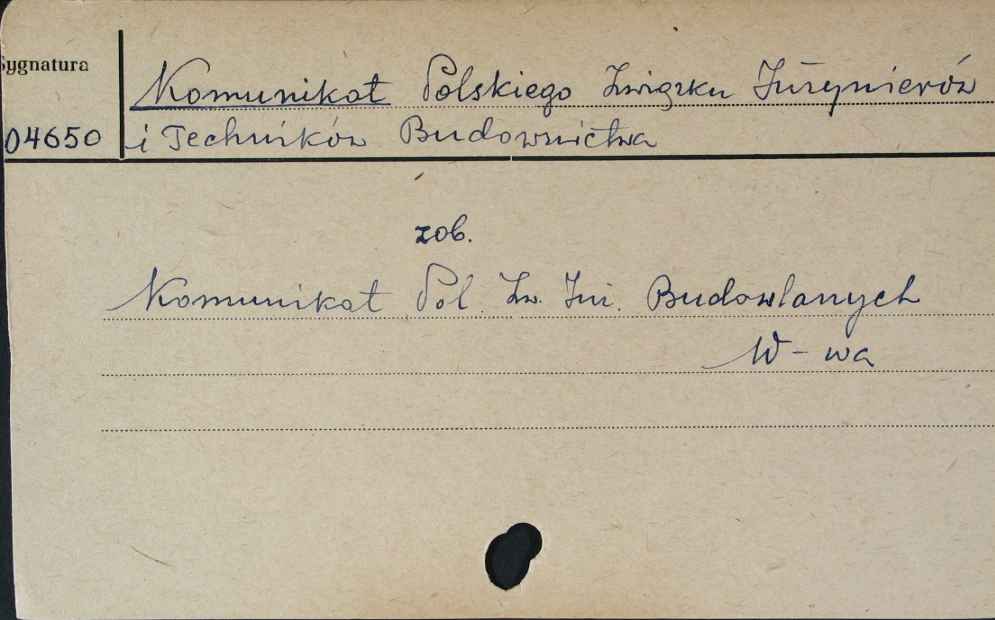 Sygnatura
Komunikat Polskiego Związku Inżynierów
04650 i Techników Budownictwa
zob.
Komunikat Pol. Zw. Inż. Budowlanych
W-wa